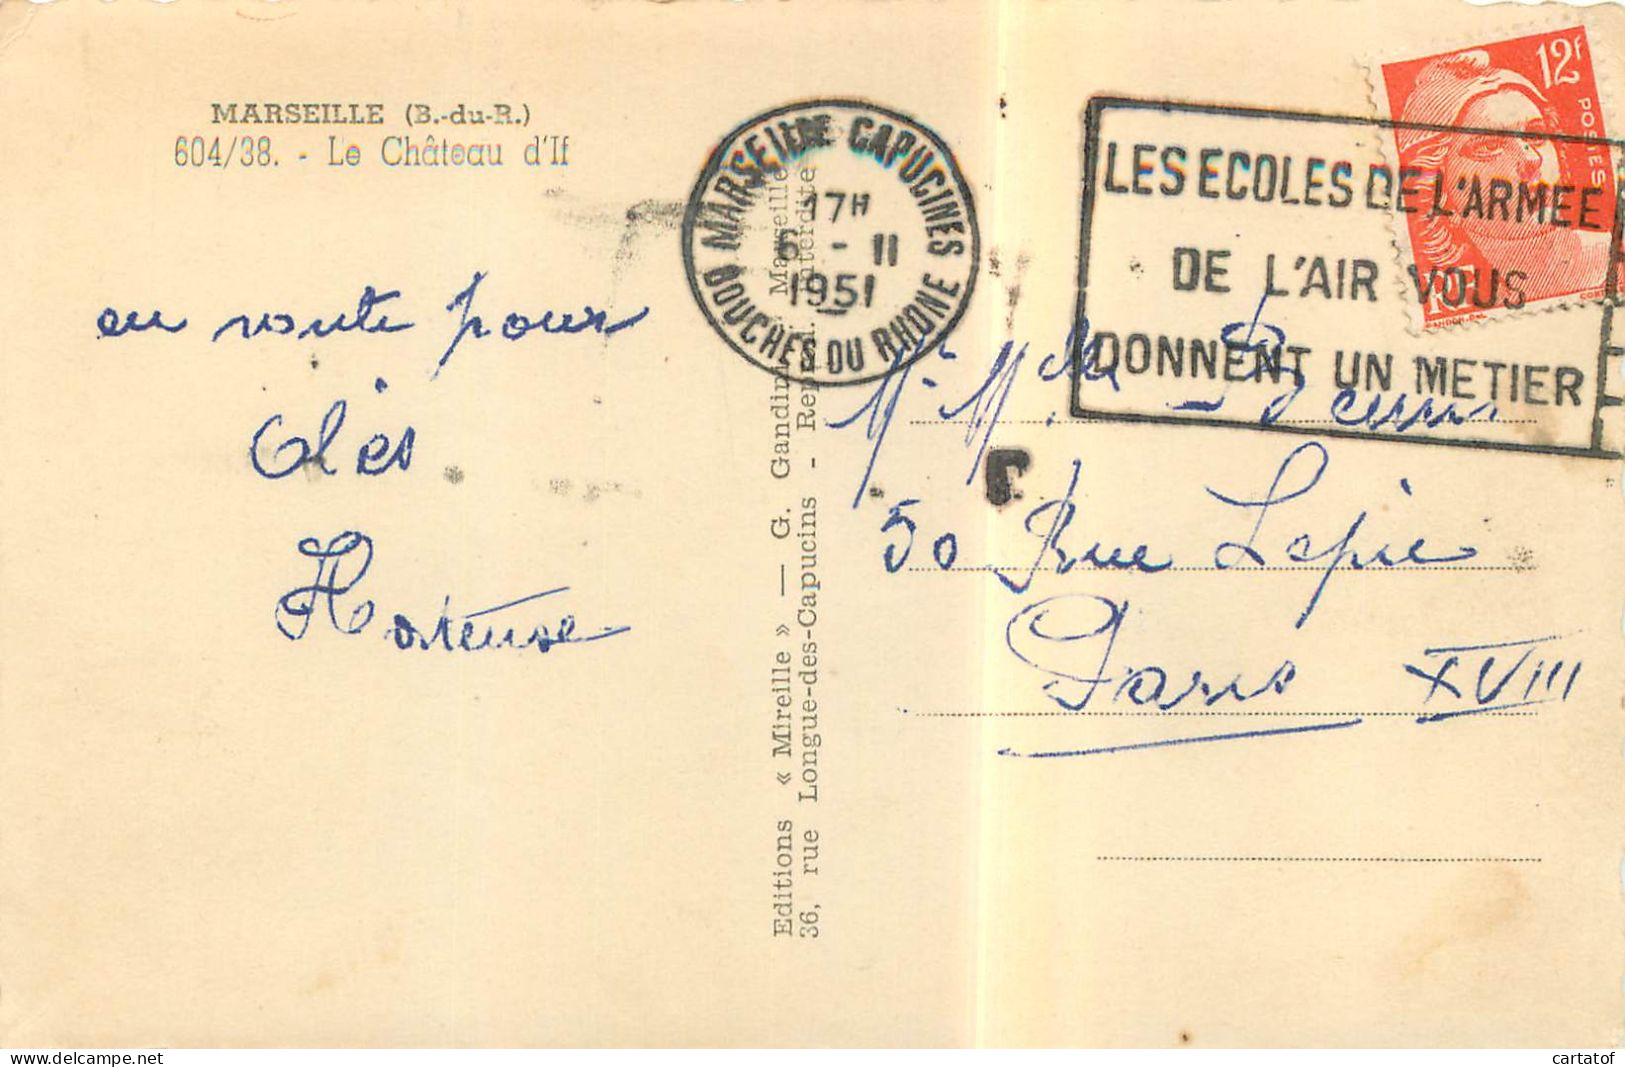 MARSEILLE (B.-du-R.)
604/38. - Le Château d'If
en route pour
Alès
Hortense
Editions « Mireille » — G. Gandini Marseille
36, rue Longue-des-Capucins - Reprod. Interdite
MARSEILLE CAPUCINES
17H
-11
1951
BOUCHES DU RHONE
LES ECOLES DE L'ARMEE
DE L'AIR VOUS
DONNENT UN METIER
12F
POSTES
RF
GANDON.DEL
50 Rue Lepic
Paris XVIII
cartatof